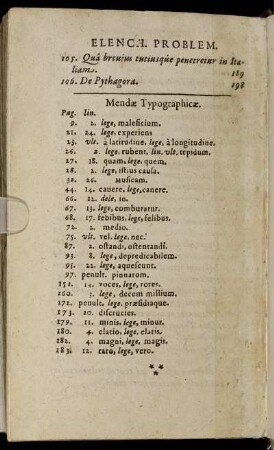 ELENCƎ. PROBLEM.
105. Quâ breuius tutiusq́ue penetretur in Ita-
liam. 189
106. De Pythagora. 198
Mendæ Typographicæ.
Pag. lin.
9. 2. lege, maleficium.
21. 24. lege, experiens
25. vlt. à latitudine. lege, à longitudine.
26. 2. lege, rubent. lin. vlt. tepidum.
27. 18. quam. lege, quem.
28. 2. lege, istius causa.
32. 26. Musicam.
44. 14. cauere. lege, canere.
66. 12. dele, in.
67. 13. lege, comburatur.
68. 17. febibus. lege, felibus.
72. 2. medio.
75. vlt. vel. lege, nec.
87. 2. ostandi, ostentandi.
93. 8. lege, depredicabilem.
95. 22. lege, aquescunt.
97. penult. pinnarum.
151. 12. voces. lege, rores.
160. 5. lege, decem millium.
171. penult. lege, præsidiaque.
173. 10. discrucies.
179. 15. minis. lege, minus.
180. 4. elatio. lege, elatis.
182. 4. magni, lege, magis.
183. 12. raro, lege, vero.